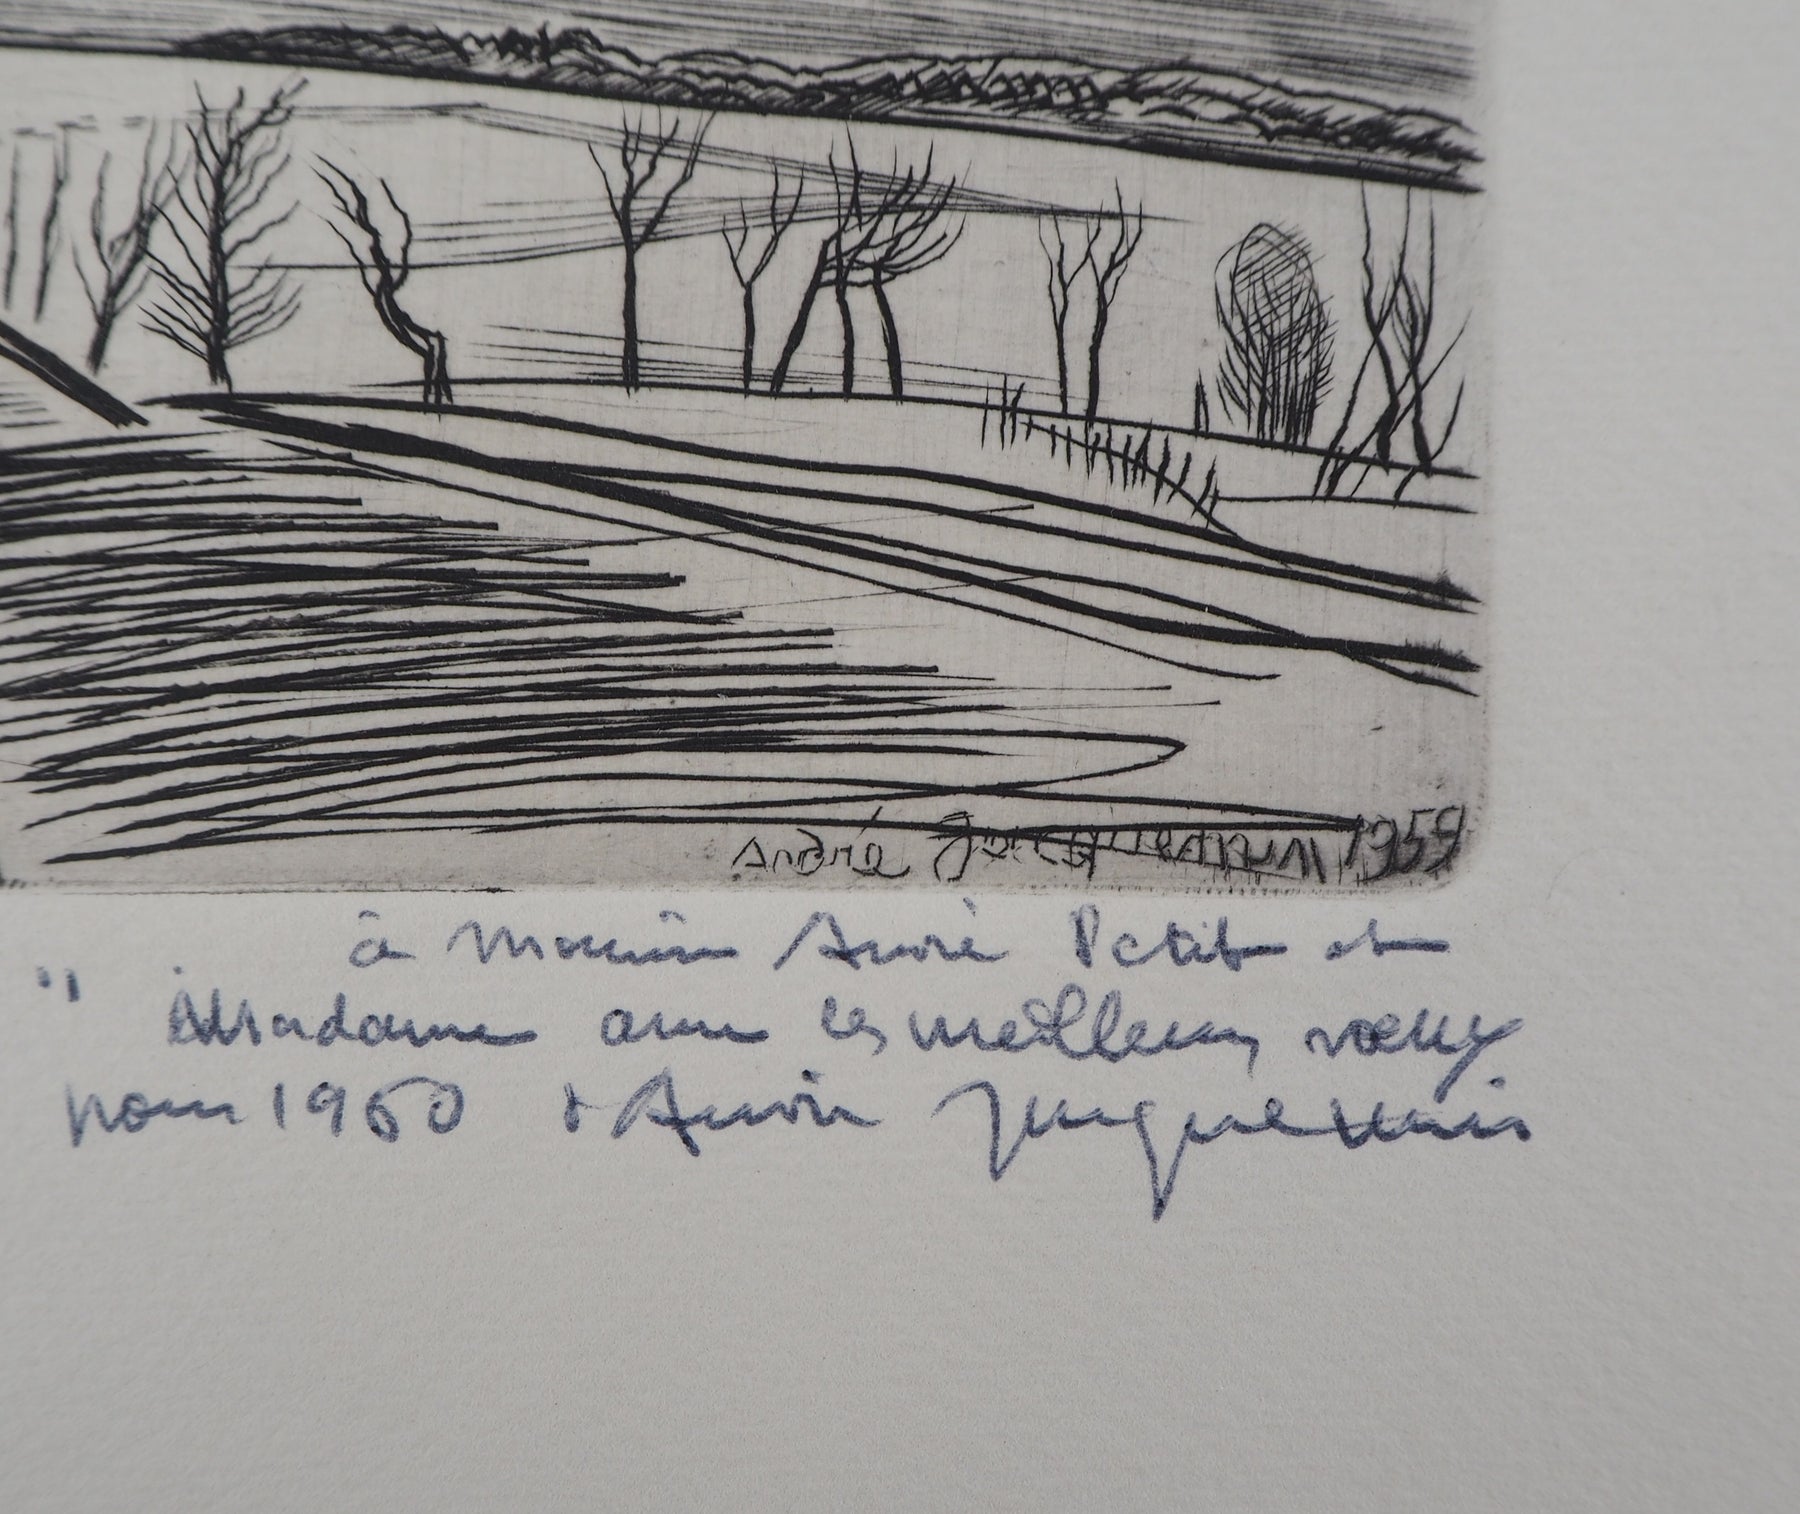 André Jacquemin 1959
à Monsieur André Petit et
" Madame avec les meilleurs vœux
pour 1960 + André Jacquemin